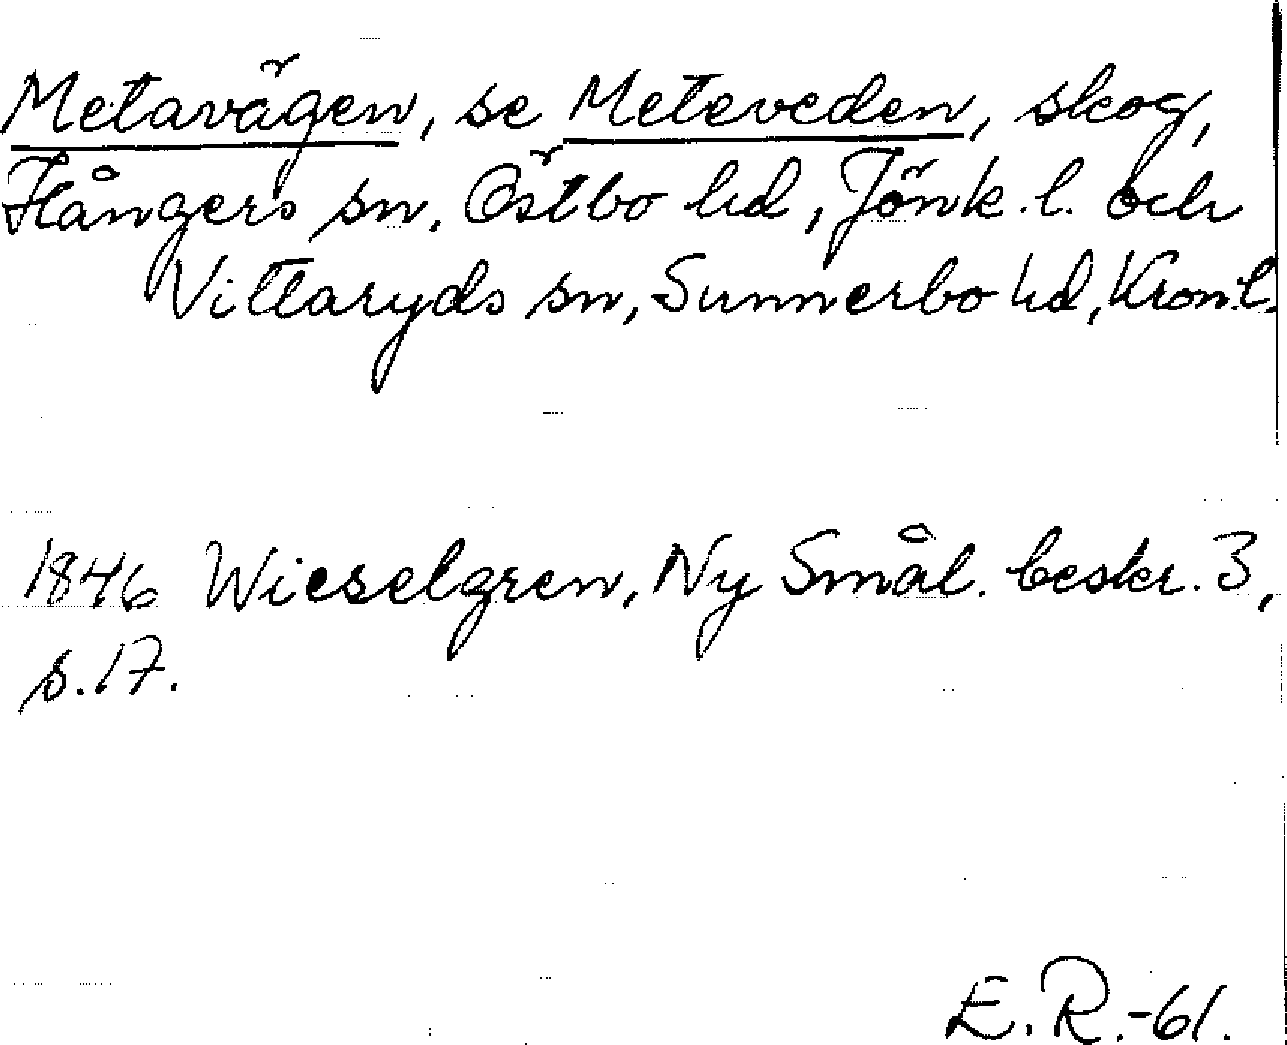 Metavägen, se Meteveden, skog,
Hångers sn, Östbo hd, Jönk. l. och
Vittaryds sn, Sunnerbo hd, Kron. l.
1846 Wieselgren, Ny Smål. beskr. 3,
s. 17.
E. R. -61.